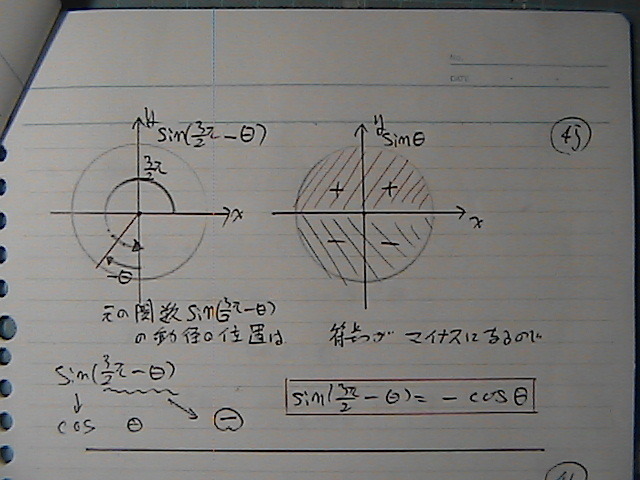 NO.
DATE
45
y
sin(3/2π－θ)
3/2π
x
－θ
y
sinθ
＋ ＋
－ －
x
元の関数sin(3/2π－θ)
の動径の位置は
符号がマイナスになるので
sin(3/2π－θ)
↓
cos θ －
sin(3π/2－θ)＝－cosθ